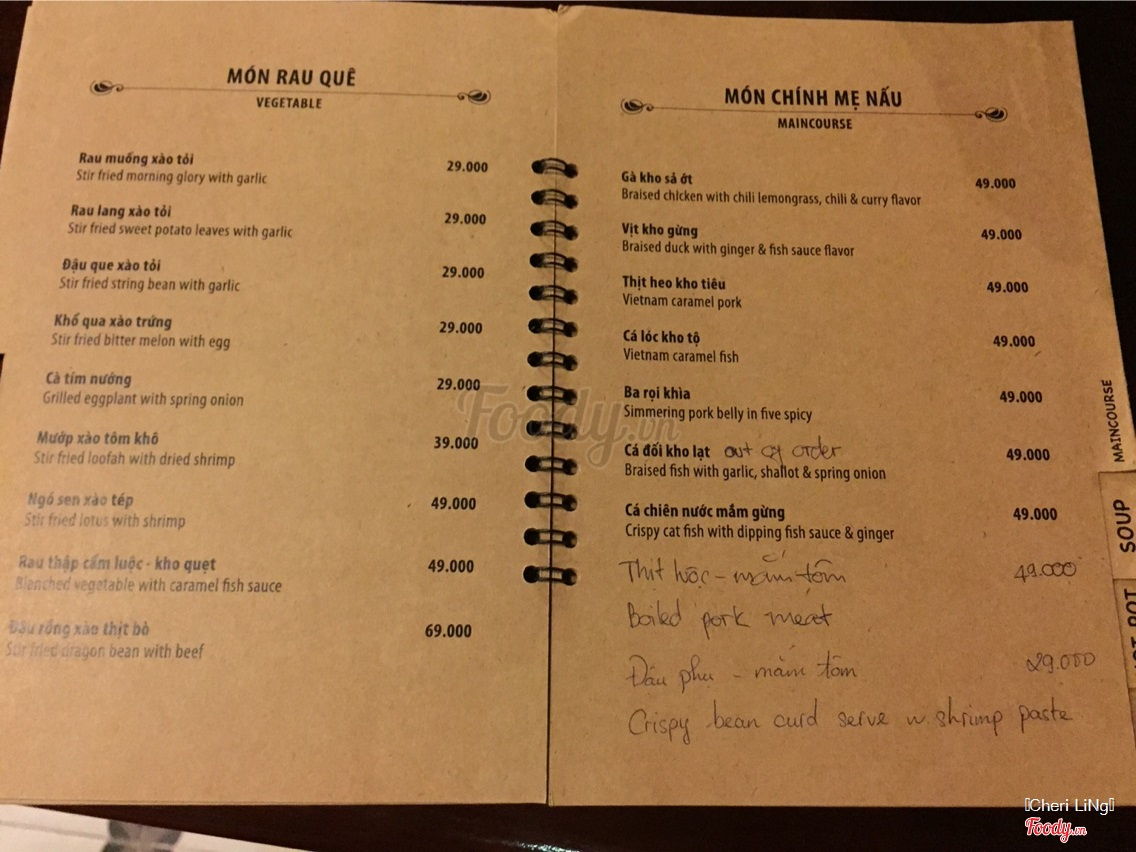 MÓN RAU QUÊ
VEGETABLE
Rau muống xào tỏi 29.000
Stir fried morning glory with garlic
Rau lang xào tỏi 29.000
Stir fried sweet potato leaves with garlic
Đậu que xào tỏi 29.000
Stir fried string bean with garlic
Khổ qua xào trứng 29.000
Stir fried bitter melon with egg
Cà tím nướng 29.000
Grilled eggplant with spring onion
Mướp xào tôm khô 39.000
Stir fried loofah with dried shrimp
Ngó sen xào tép 49.000
Stir fried lotus with shrimp
Rau thập cẩm luộc - kho quẹt 49.000
Blanched vegetable with caramel fish sauce
Đậu rồng xào thịt bò 69.000
Stir fried dragon bean with beef
MÓN CHÍNH MẸ NẤU
MAINCOURSE
Gà kho sả ớt 49.000
Braised chicken with chili lemongrass, chili & curry flavor
Vịt kho gừng 49.000
Braised duck with ginger & fish sauce flavor
Thịt heo kho tiêu 49.000
Vietnam caramel pork
Cá lóc kho tộ 49.000
Vietnam caramel fish
Ba rọi khìa 49.000
Simmering pork belly in five spicy
Cá đối kho lạt out of order 49.000
Braised fish with garlic, shallot & spring onion
Cá chiên nước mắm gừng 49.000
Crispy cat fish with dipping fish sauce & ginger
Thịt luộc - mắm tôm 49.000
Boiled pork meat
Đậu phụ - mắm tôm 29.000
Crispy bean curd serve w shrimp paste
MAINCOURSE
SOUP
Foody.vn
Cheri LiNg
Foody.vn